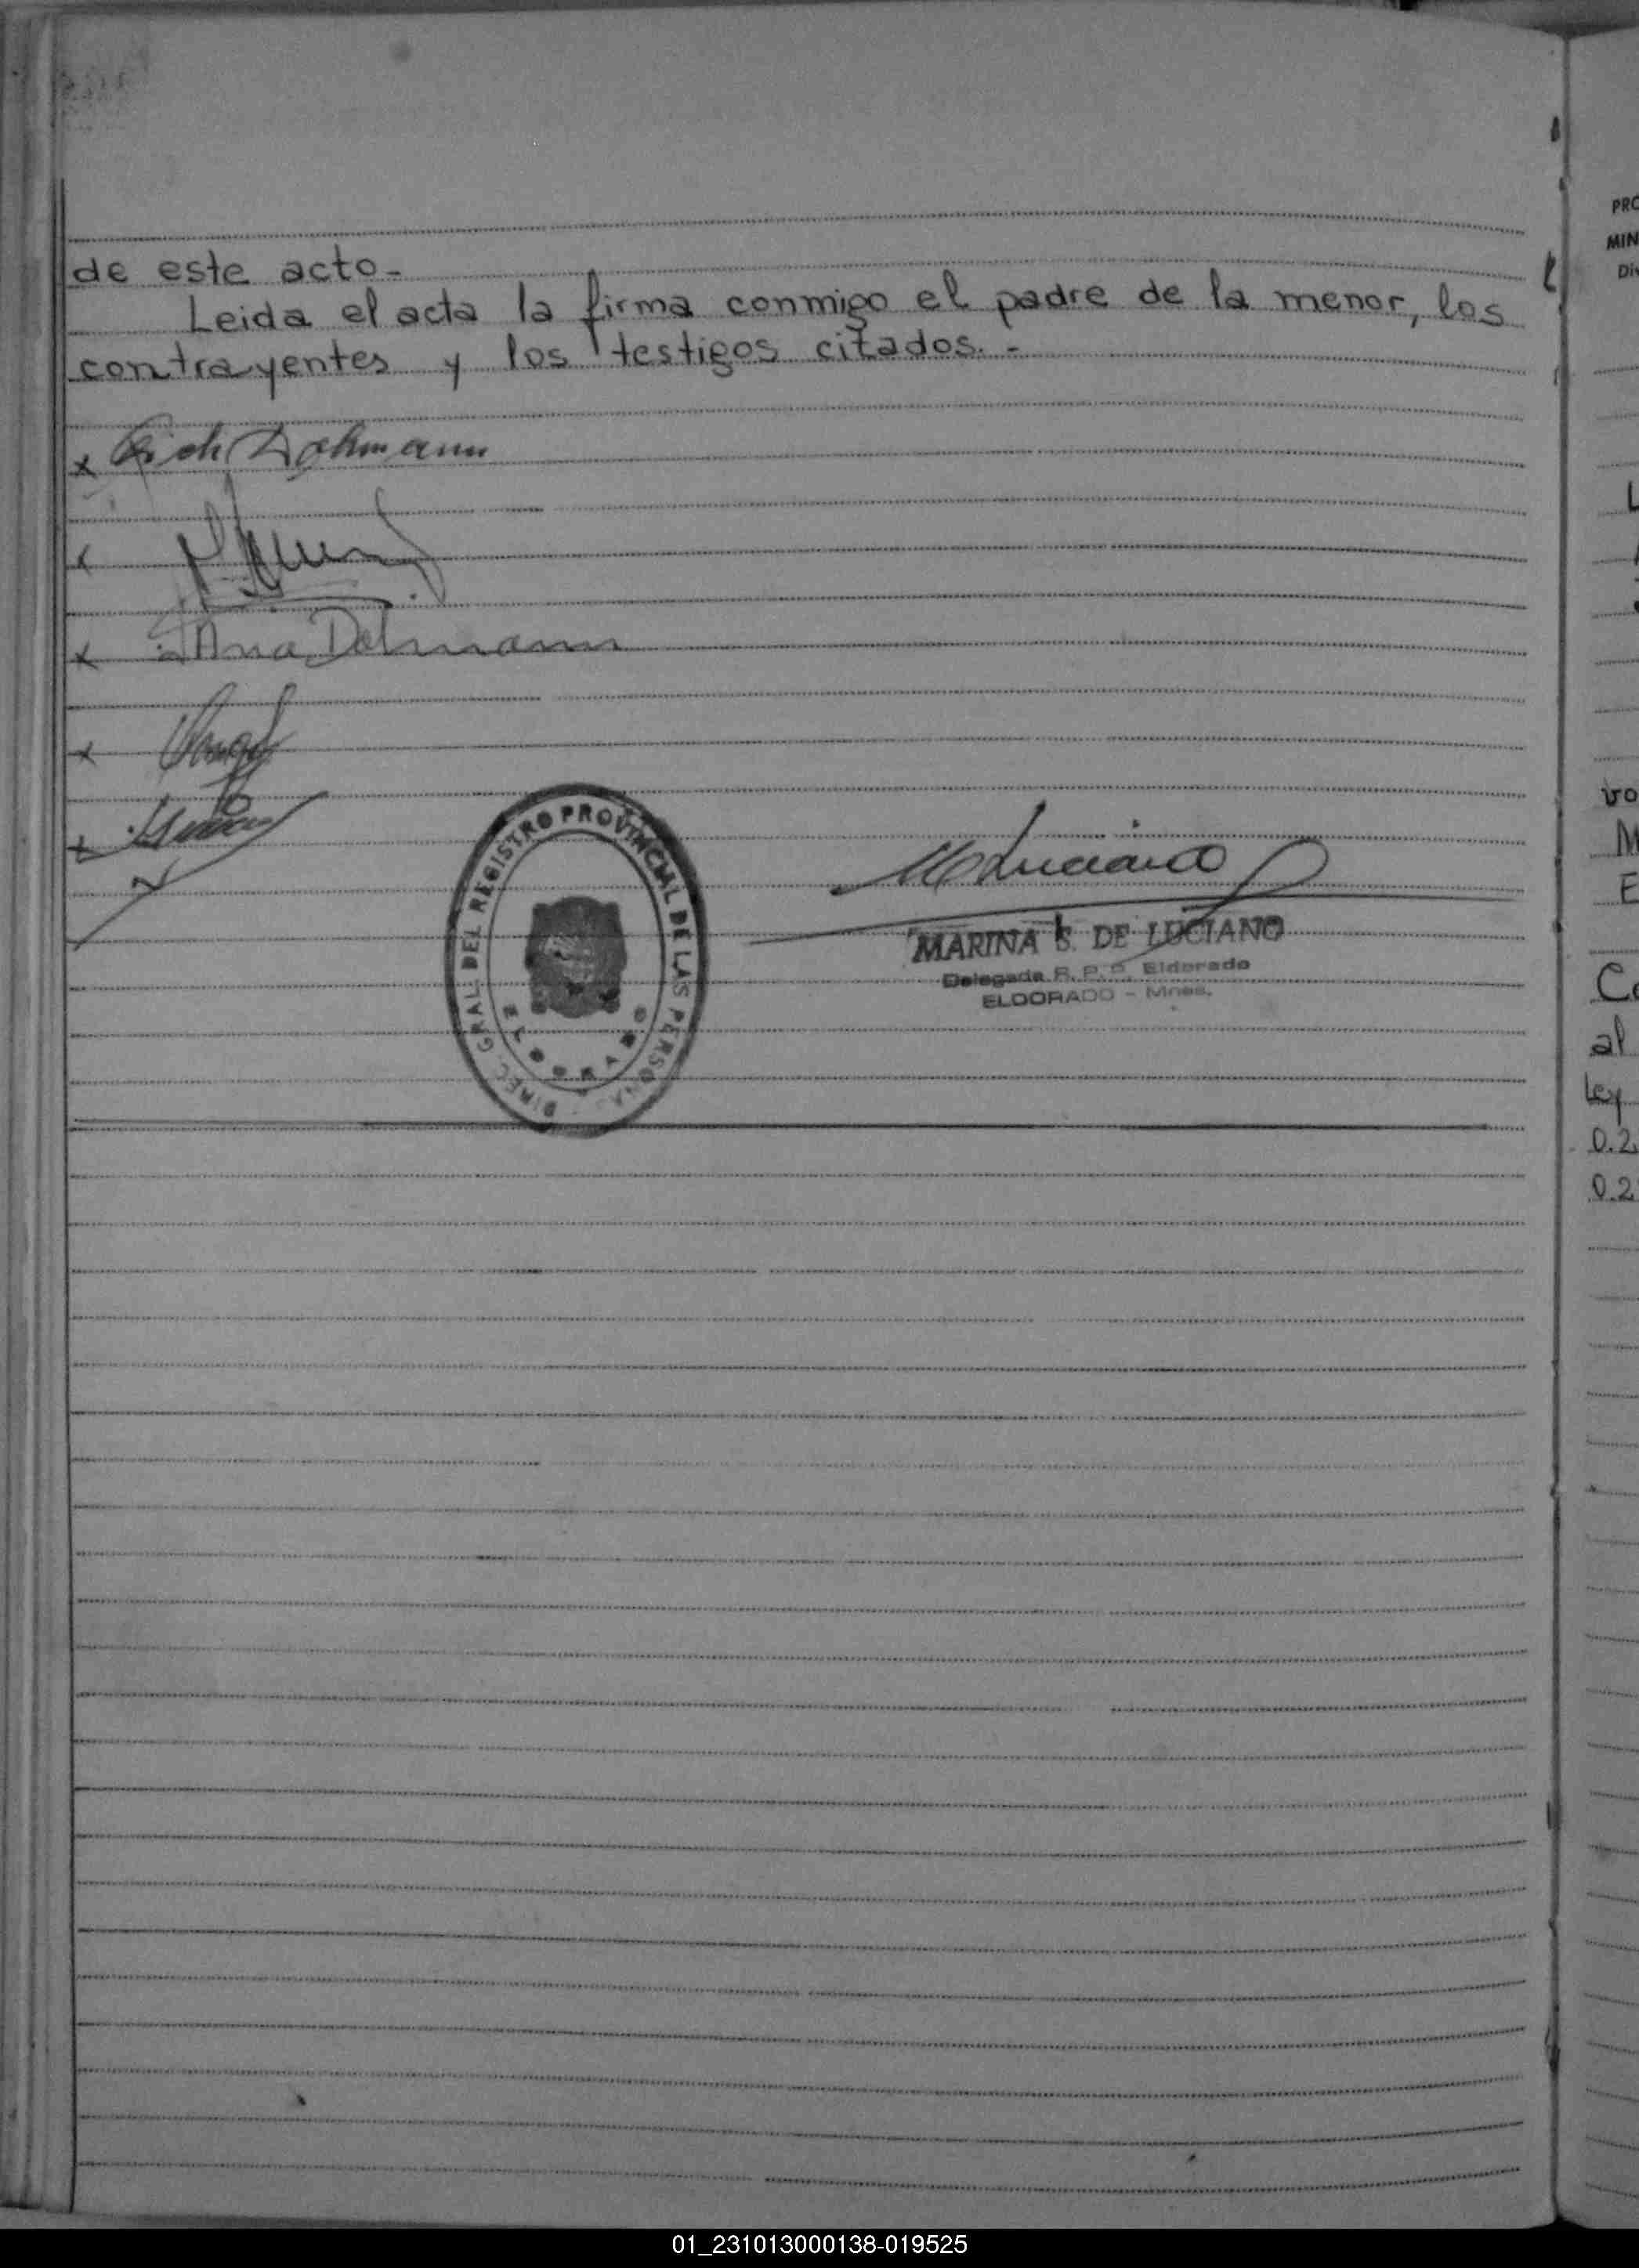 de este acto.-
Leida el acta la firma conmigo el padre de la menor, los
contrayentes y los testigos citados.-
x Erich Dohmann
x
x Ana Dohmann
x
x
DIREC. GRAL. DEL REGISTRO PROVINCIAL DE LAS PERSONAS
ELDORADO
MdeLuciano
MARINA S. DE LUCIANO
Delegada R. P. P. Eldorado
ELDORADO - Mnes.
PRO
MIN
Di
L
vo
M
E
Ce
al
Ley
0.2
0.2
01_231013000138-019525